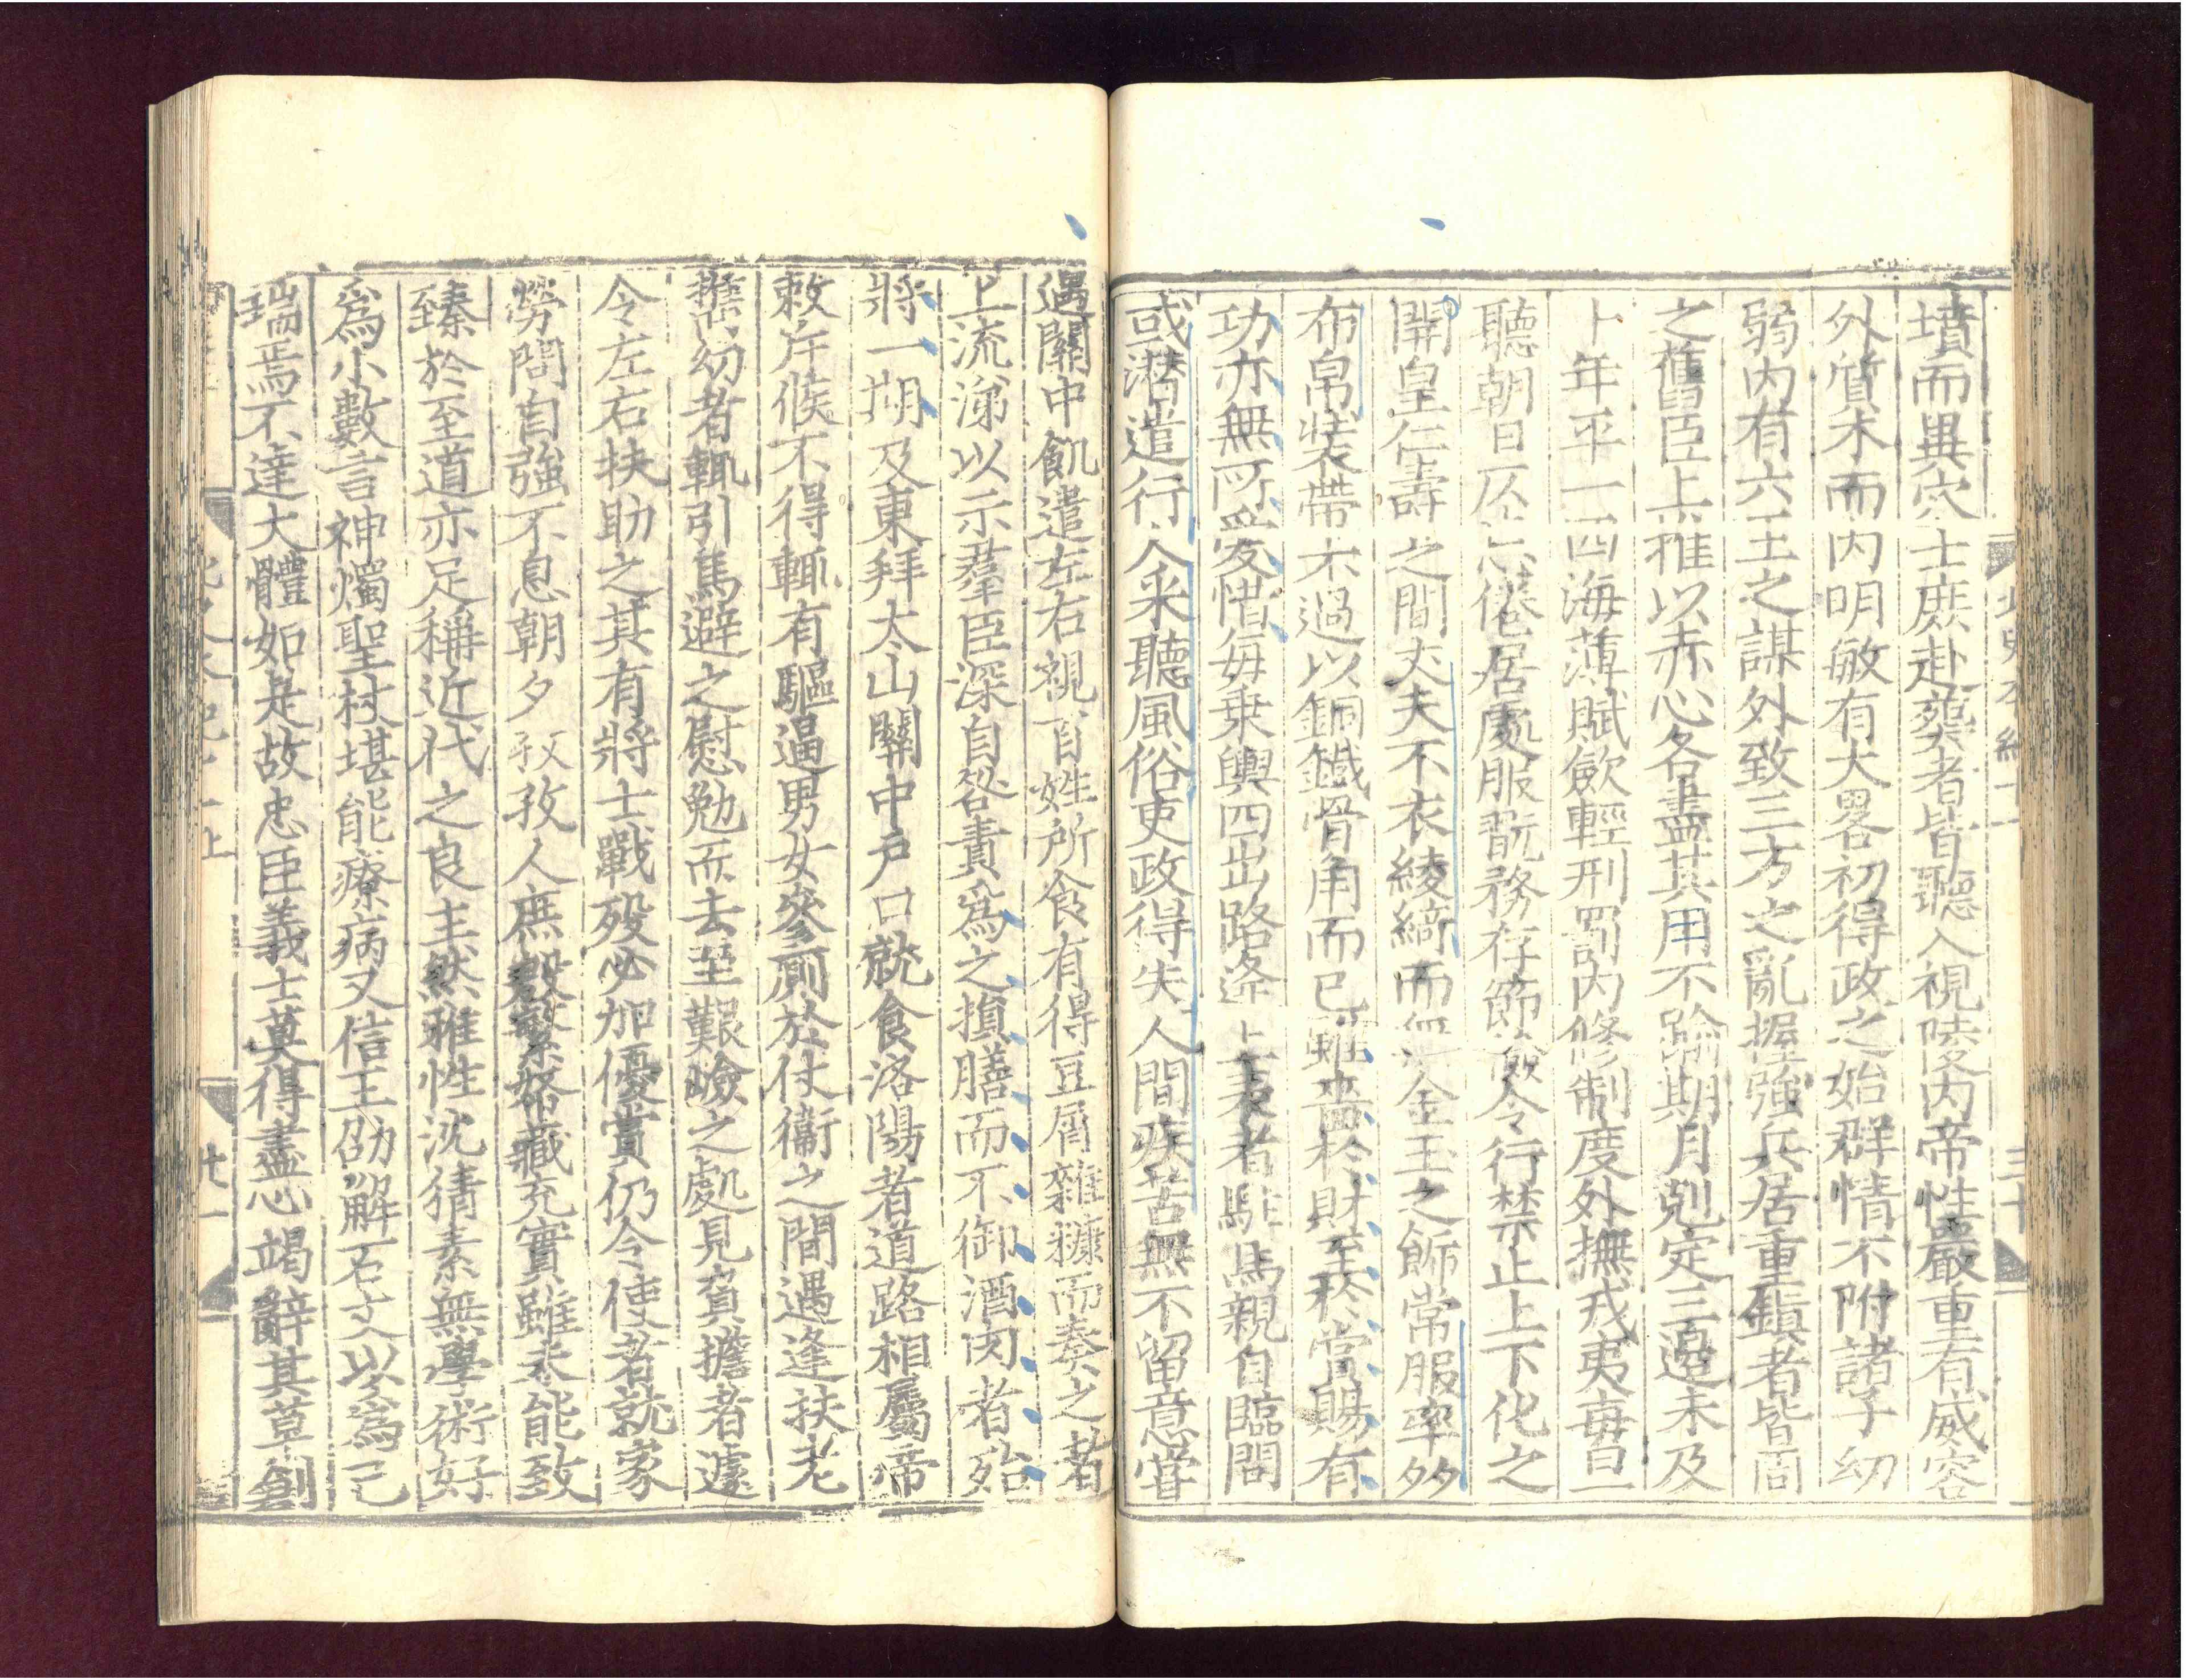 北史本紀十一
三十
墳而異穴士庶赴葬者皆聽入視陵內帝性嚴重有威容
外質木而內明敏有大畧初得政之始群情不附諸子幼
弱內有六王之謀外致三方之亂握強兵居重鎮者皆周
之舊臣上推以赤心各盡其用不踰期月剋定三邊未及
十年平一四海薄賦斂輕刑罰內修制度外撫戎夷每日一
聽朝日仄忘倦居處服翫務存節儉令行禁止上下化之
開皇仁壽之間丈夫不衣綾綺而無金玉之飾常服率多
布帛裝帶不過以銅鐵骨角而已雖嗇於財至於賞賜有
功亦無所愛惜每乗輿四出路逢上表者駐馬親自臨問
或潛遣行人采聽風俗吏政得失人間疾苦無不留意嘗
遇關中飢遣左右視百姓所食有得豆屑雜糠而奏之者
上流涕以示羣臣深自咎責爲之損膳而不御酒肉者殆
將一朞及東拜太山關中戶口就食洛陽者道路相屬帝
敕斥候不得輒有驅逼男女參厠於仗衞之間遇逢扶老
攜幼者輒引馬避之慰勉而去至艱嶮之處見負擔者遽
令左右扶助之其有將士戰歿必加優賞仍令使者就家
勞問自強不息朝夕孜孜人庶殷繁帑藏充實雖未能致
臻於至道亦足稱近代之良主然雅性沈猜素無學術好
爲小數言神燭聖杖堪能療病又信王劭解石文以爲己
瑞焉不達大體如是故忠臣義士莫得盡心竭辭其草創
北史本紀十一上
卅一